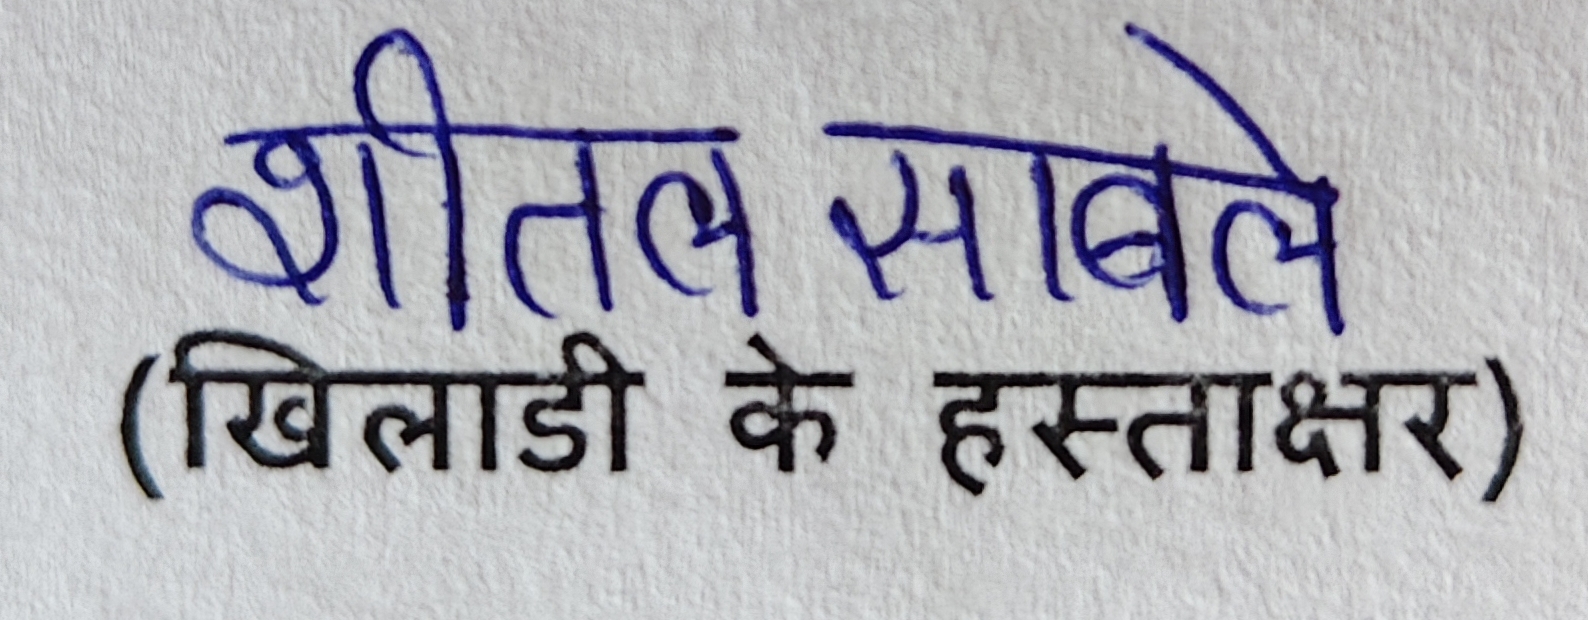 शीतल साबले
(खिलाडी के हस्ताक्षर)